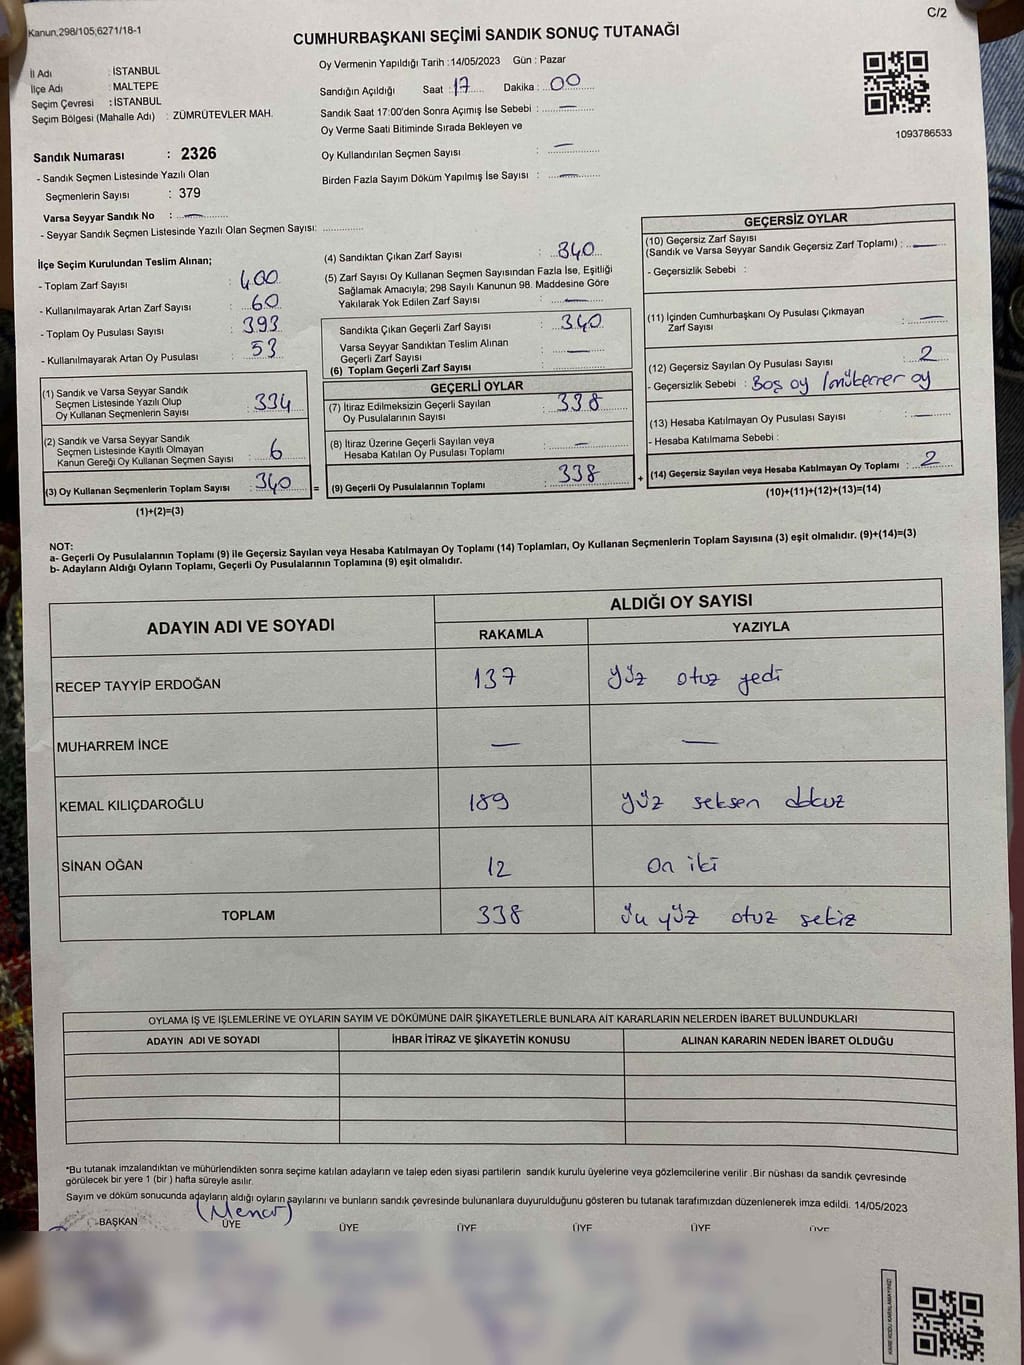 C/2
Kanun,298/105,6271/18-1
CUMHURBAŞKANI SEÇİMİ SANDIK SONUÇ TUTANAĞI
İl Adı : İSTANBUL
İlçe Adı : MALTEPE
Seçim Çevresi : İSTANBUL
Seçim Bölgesi (Mahalle Adı) : ZÜMRÜTEVLER MAH.
Oy Vermenin Yapıldığı Tarih :14/05/2023 Gün : Pazar
Sandığın Açıldığı Saat : 17 Dakika : 00
Sandık Saat 17:00'den Sonra Açımış İse Sebebi : —
Oy Verme Saati Bitiminde Sırada Bekleyen ve
Oy Kullandırılan Seçmen Sayısı : —
Birden Fazla Sayım Döküm Yapılmış İse Sayısı : —
1093786533
Sandık Numarası : 2326
- Sandık Seçmen Listesinde Yazılı Olan
Seçmenlerin Sayısı : 379
Varsa Seyyar Sandık No : —
- Seyyar Sandık Seçmen Listesinde Yazılı Olan Seçmen Sayısı:
İlçe Seçim Kurulundan Teslim Alınan;
- Toplam Zarf Sayısı : 400
- Kullanılmayarak Artan Zarf Sayısı : 60
- Toplam Oy Pusulası Sayısı : 393
- Kullanılmayarak Artan Oy Pusulası : 53
(1) Sandık ve Varsa Seyyar Sandık
Seçmen Listesinde Yazılı Olup
Oy Kullanan Seçmenlerin Sayısı : 334
(2) Sandık ve Varsa Seyyar Sandık
Seçmen Listesinde Kayıtlı Olmayan
Kanun Gereği Oy Kullanan Seçmen Sayısı : 6
(3) Oy Kullanan Seçmenlerin Toplam Sayısı : 340 =
(1)+(2)=(3)
(4) Sandıktan Çıkan Zarf Sayısı : 340
(5) Zarf Sayısı Oy Kullanan Seçmen Sayısından Fazla İse, Eşitliği
Sağlamak Amacıyla; 298 Sayılı Kanunun 98. Maddesine Göre
Yakılarak Yok Edilen Zarf Sayısı : —
Sandıkta Çıkan Geçerli Zarf Sayısı : 340
Varsa Seyyar Sandıktan Teslim Alınan
Geçerli Zarf Sayısı : —
(6) Toplam Geçerli Zarf Sayısı :
GEÇERLİ OYLAR
(7) İtiraz Edilmeksizin Geçerli Sayılan
Oy Pusulalarının Sayısı : 338
(8) İtiraz Üzerine Geçerli Sayılan veya
Hesaba Katılan Oy Pusulası Toplamı : —
(9) Geçerli Oy Pusulalarının Toplamı : 338 +
GEÇERSİZ OYLAR
(10) Geçersiz Zarf Sayısı
(Sandık ve Varsa Seyyar Sandık Geçersiz Zarf Toplamı) : —
- Geçersizlik Sebebi :
(11) İçinden Cumhurbaşkanı Oy Pusulası Çıkmayan
Zarf Sayısı : —
(12) Geçersiz Sayılan Oy Pusulası Sayısı : 2
- Geçersizlik Sebebi : Boş oy / mükerrer oy
(13) Hesaba Katılmayan Oy Pusulası Sayısı : —
- Hesaba Katılmama Sebebi :
(14) Geçersiz Sayılan veya Hesaba Katılmayan Oy Toplamı : 2
(10)+(11)+(12)+(13)=(14)
NOT:
a- Geçerli Oy Pusulalarının Toplamı (9) ile Geçersiz Sayılan veya Hesaba Katılmayan Oy Toplamı (14) Toplamları, Oy Kullanan Seçmenlerin Toplam Sayısına (3) eşit olmalıdır. (9)+(14)=(3)
b- Adayların Aldığı Oyların Toplamı, Geçerli Oy Pusulalarının Toplamına (9) eşit olmalıdır.
ADAYIN ADI VE SOYADI
ALDIĞI OY SAYISI
RAKAMLA YAZIYLA
RECEP TAYYİP ERDOĞAN 137 yüz otuz yedi
MUHARREM İNCE — —
KEMAL KILIÇDAROĞLU 189 yüz seksen dokuz
SİNAN OĞAN 12 on iki
TOPLAM 338 üç yüz otuz sekiz
OYLAMA İŞ VE İŞLEMLERİNE VE OYLARIN SAYIM VE DÖKÜMÜNE DAİR ŞİKAYETLERLE BUNLARA AİT KARARLARIN NELERDEN İBARET BULUNDUKLARI
ADAYIN ADI VE SOYADI İHBAR İTİRAZ VE ŞİKAYETİN KONUSU ALINAN KARARIN NEDEN İBARET OLDUĞU
*Bu tutanak imzalandıktan ve mühürlendikten sonra seçime katılan adayların ve talep eden siyasi partilerin sandık kurulu üyelerine veya gözlemcilerine verilir .Bir nüshası da sandık çevresinde
görülecek bir yere 1 (bir ) hafta süreyle asılır.
Sayım ve döküm sonucunda adayların aldığı oyların sayılarını ve bunların sandık çevresinde bulunanlara duyurulduğunu gösteren bu tutanak tarafımızdan düzenlenerek imza edildi. 14/05/2023
(Memur)
BAŞKAN ÜYE ÜYE ÜYE ÜYE ÜYE ÜYE